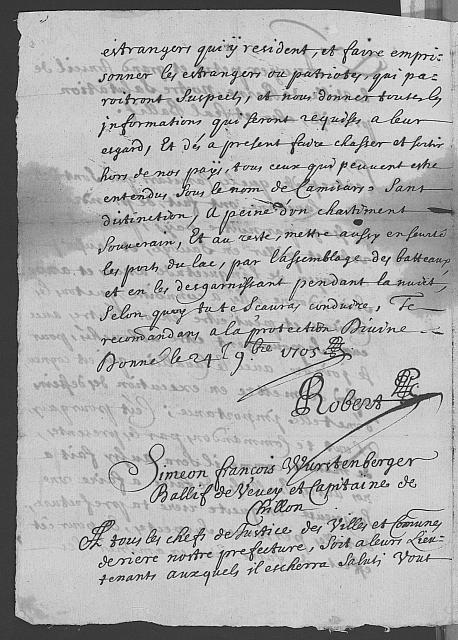 estrangers qui ÿ resident, et faire empri-
sonner les estrangers ou patriotes, qui pa-
roitront Suspects, et nous donner toutes les
informations qui seront requises a leur
egard, Et dés a present faire chasser et sortir
hors de nos pays, tous ceux qui peuvent estre
entendus sous le nom de Camisars, Sans
distinction, a peine d'un chastiment
Souverain, Et au reste, mettre aussy en seurté
les ports du lac, par l'assemblage des batteaux
et en les desgarnissant pendant la nuict,
Selon quoy tu te scauras conduire, Te
recomandans a la protection Divine
Donné le 24e 9bre 1705
Robert
Simeon françois Wurstenberger
Ballif de Vevey et Capitaine de
Chillon
A tous les chefs de Justice des Villes et Comunes
deriere nostre prefecture, Soit a leurs Lieu-
tenants auxquels il escherra Salut; Vous